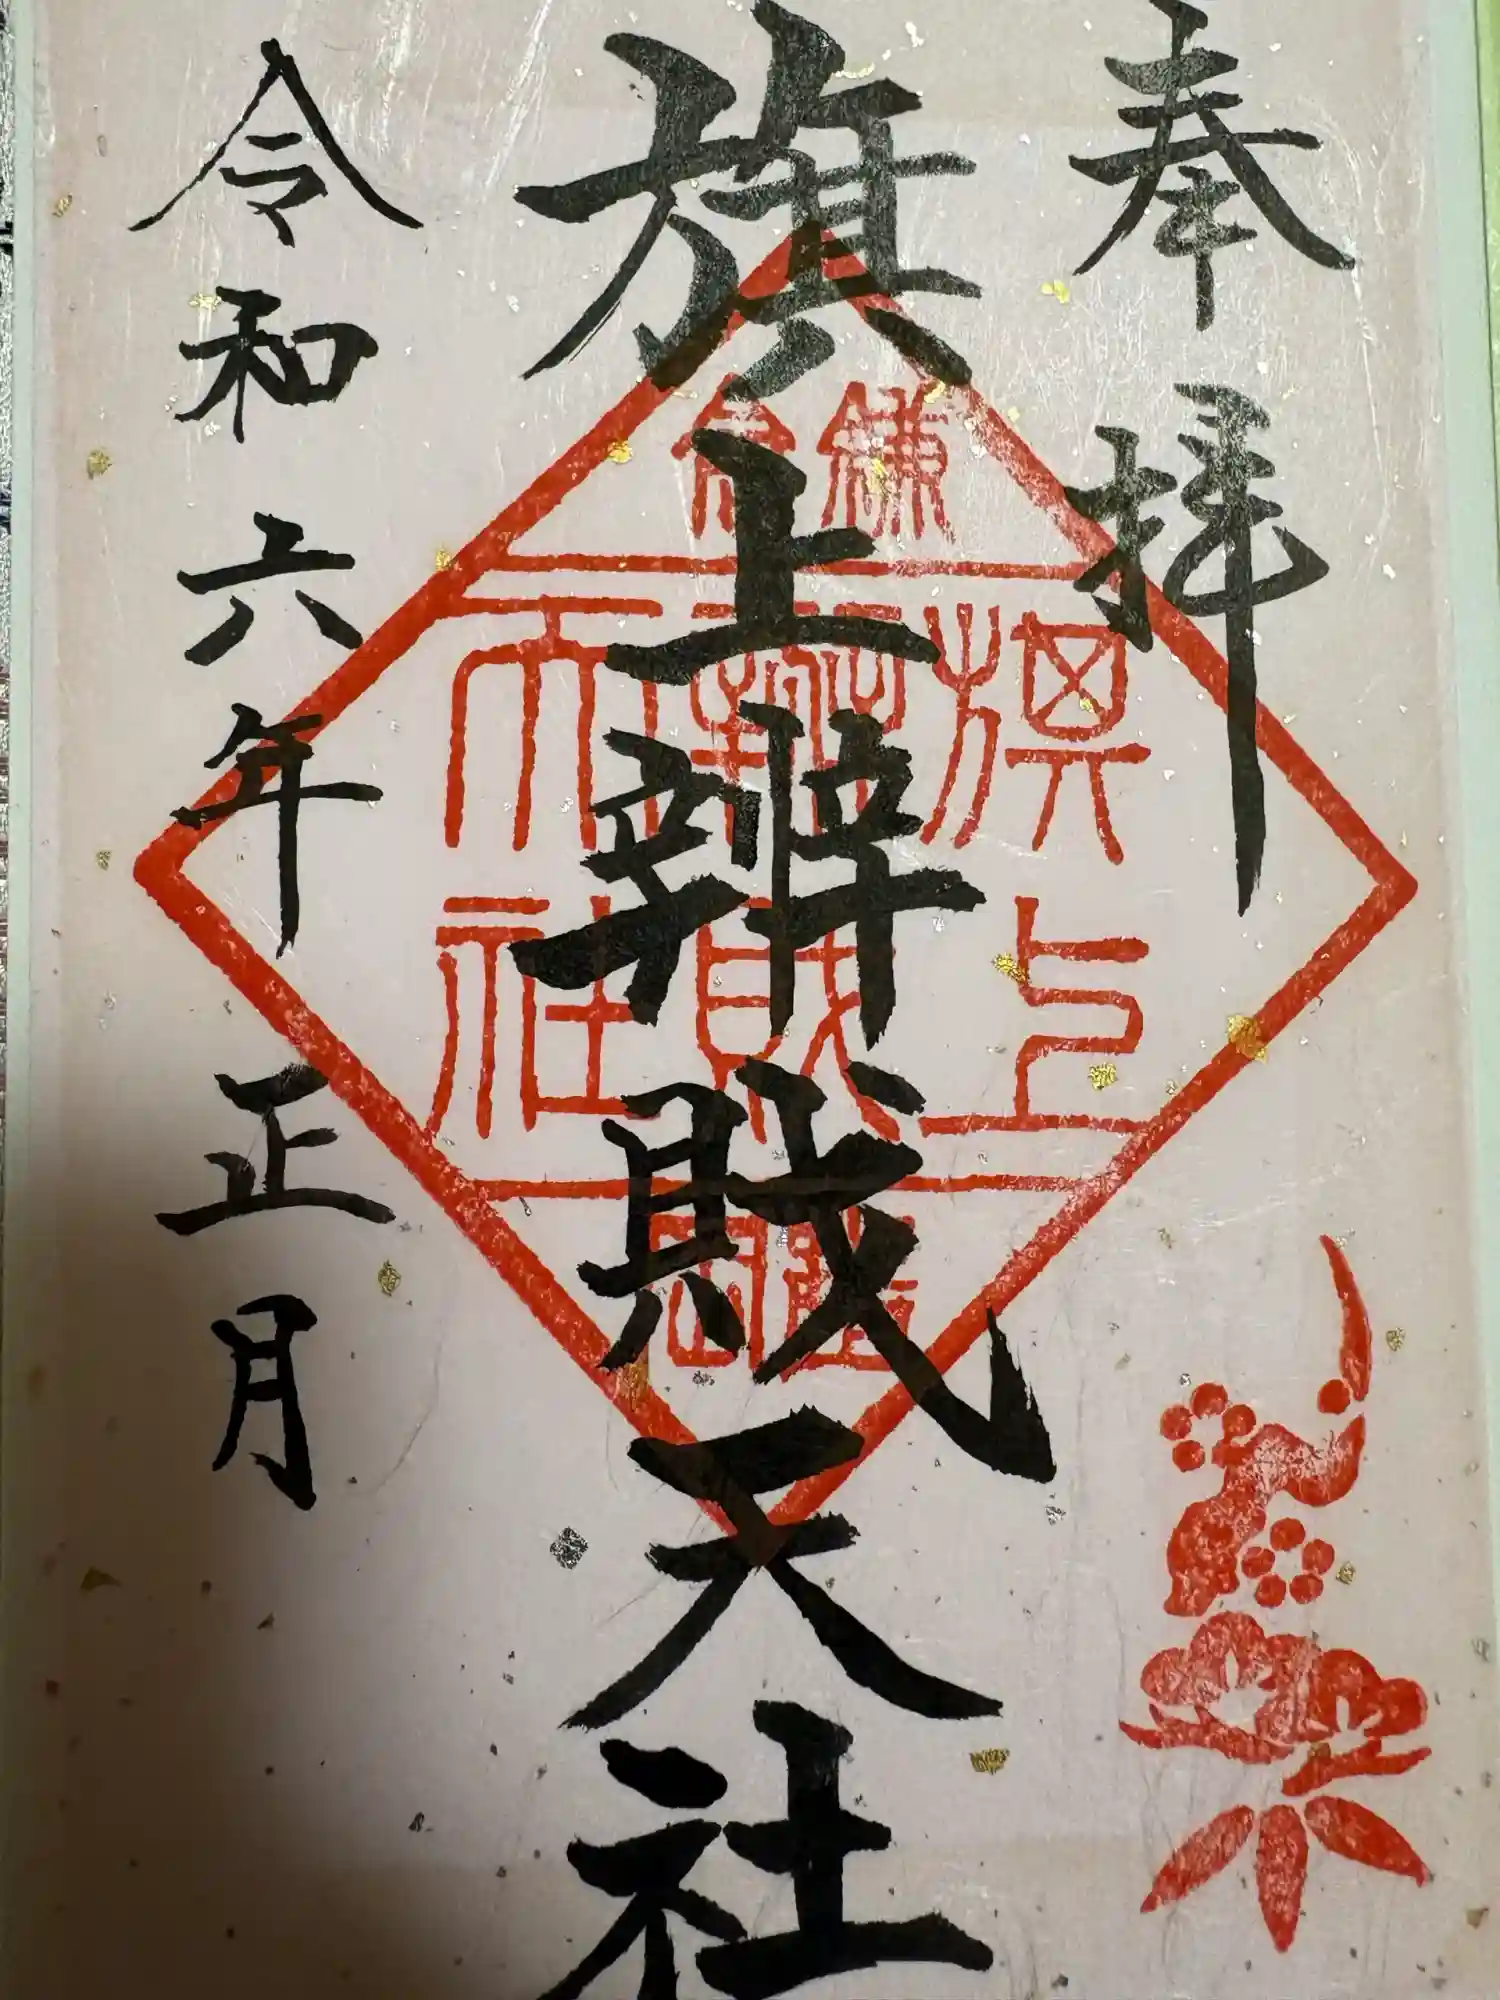 奉拝
旗上辨財天社
令和六年 正月
鎌倉
旗上
辨財
天社